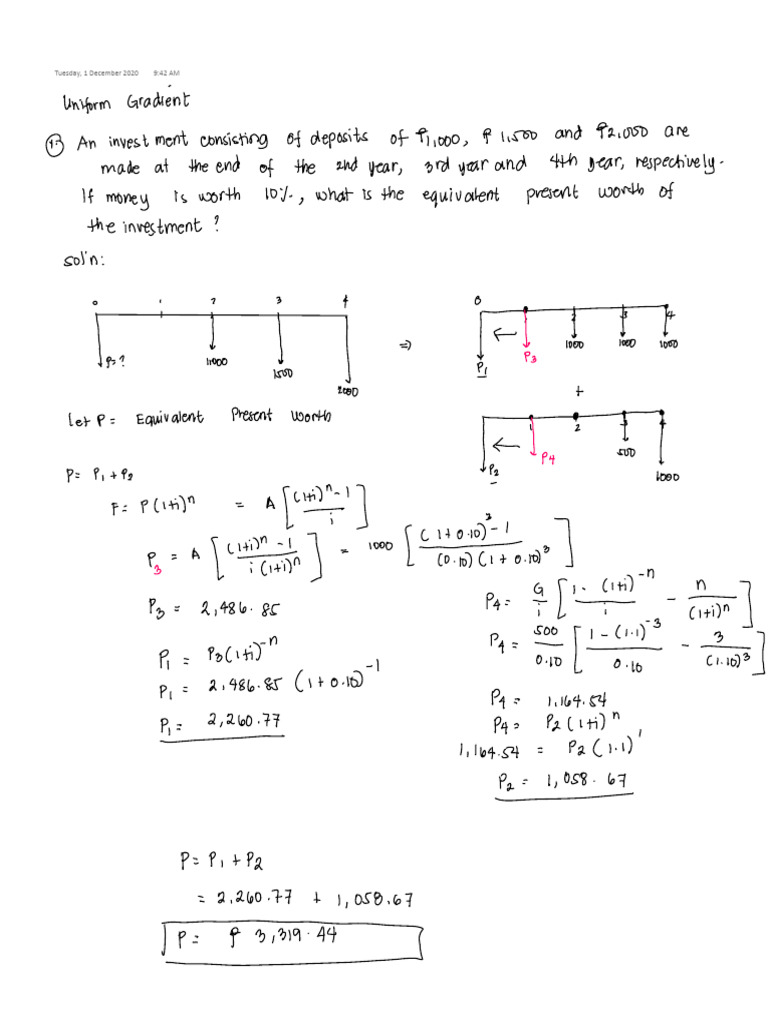 Tuesday, 1 December 2020 9:42 AM
Uniform Gradient
1.) An investment consisting of deposits of ₱1,000, ₱1,500 and ₱2,000 are
made at the end of the 2nd year, 3rd year and 4th year, respectively.
If money is worth 10%, what is the equivalent present worth of
the investment?
Sol'n:
0 1 2 3 4
P=? 1,000 1500 2000
⇒
0 2 3 4
P1 ← P3 1000 1000 1000
+
1 2 3 4
P2 ← P4 500 1000
Let P = Equivalent Present Worth
P = P1 + P2
F = P(1+i)^n = A [ ((1+i)^n - 1) / i ]
P3 = A [ ((1+i)^n - 1) / (i(1+i)^n) ] = 1000 [ ((1+0.10)^3 - 1) / ((0.10)(1+0.10)^3) ]
P3 = 2,486.85
P1 = P3(1+i)^-n
P1 = 2,486.85 (1+0.10)^-1
P1 = 2,260.77
P4 = G/i [ (1-(1+i)^-n) / i - n / (1+i)^n ]
P4 = 500/0.10 [ (1-(1.1)^-3) / 0.10 - 3 / (1.10)^3 ]
P4 = 1,164.54
P4 = P2(1+i)^n
1,164.54 = P2(1.1)^1
P2 = 1,058.67
P = P1 + P2
= 2,260.77 + 1,058.67
P = ₱ 3,319.44